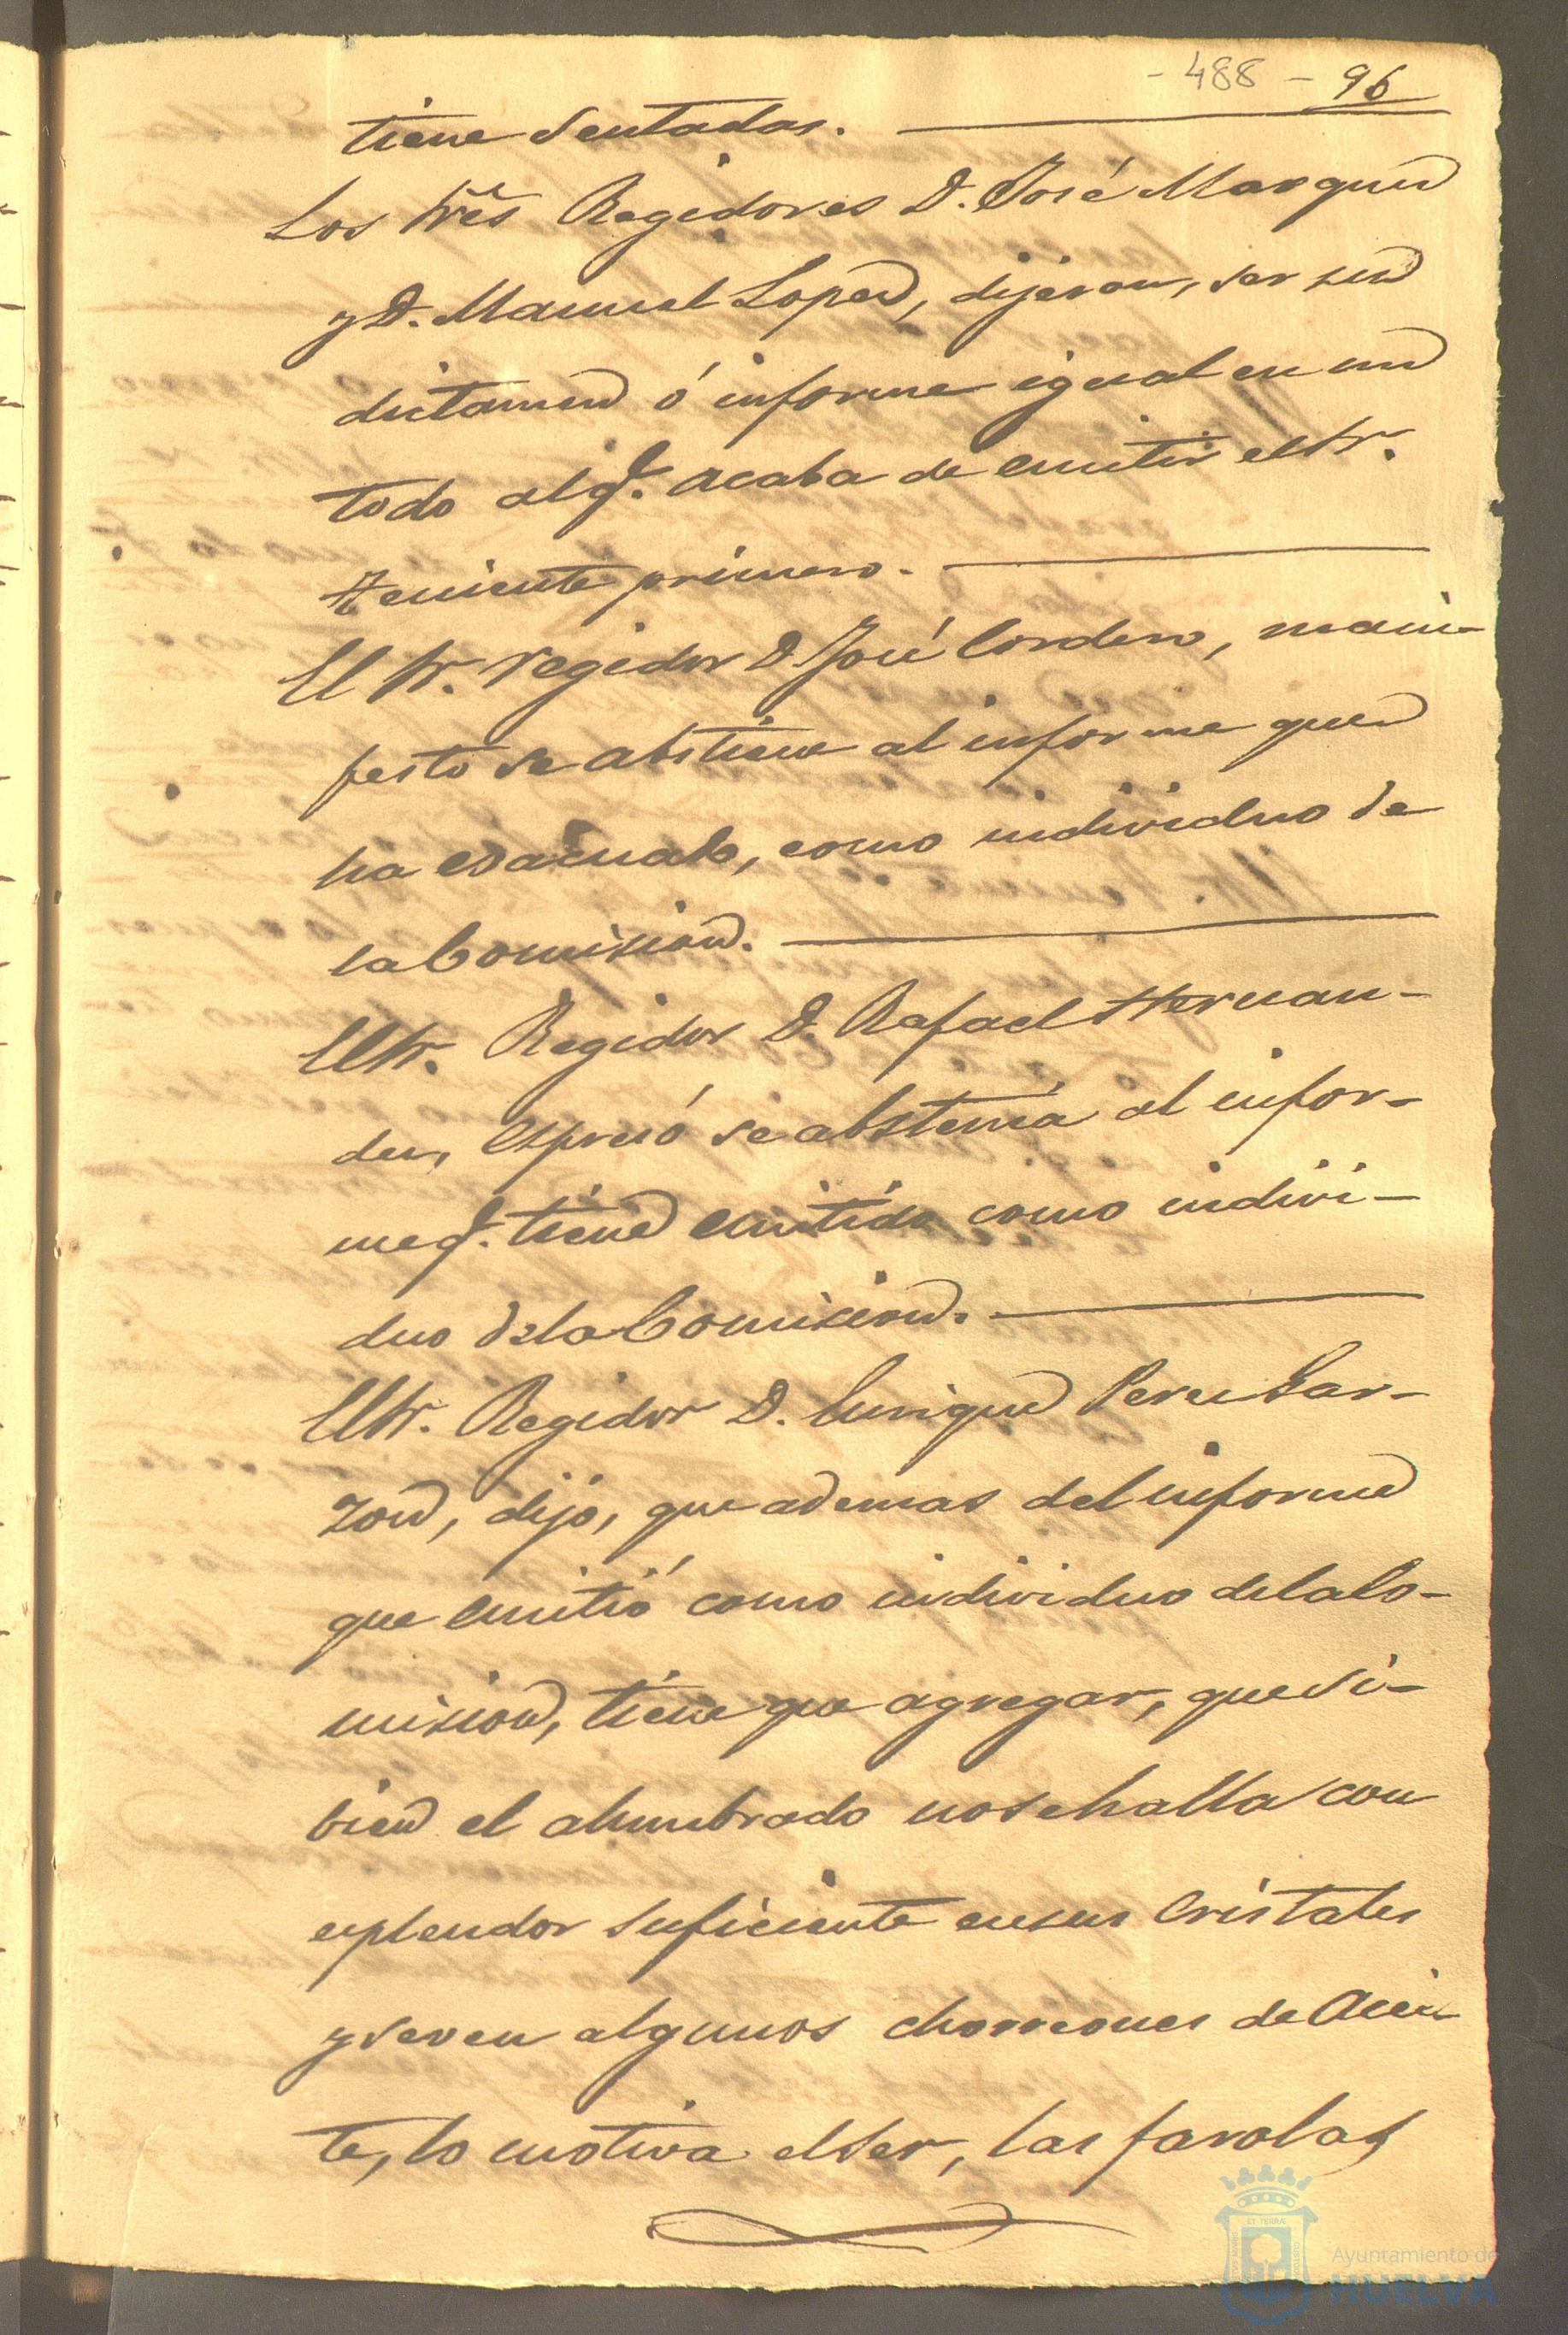 - 488 - 96
tiene sentadas.
Los Sres Regidores D. José Marquez
y D. Manuel Lopez, dijeron, ser un
dictamen ó informe igual en un
todo al q.e acaba de emitir el Sr.
Teniente primero.
El Sr. regidor D. José Cordero, mani-
festó se abstiene al informe que
ha evacuado, como individuo de
la Comision.
El Sr. Regidor D. Rafael Hernan-
dez, espresó se abstenía al infor-
me q.e tiene emitido como indivi-
duo de la Comision.
El Sr. Regidor D. Enrique Perez Gar-
zon, dijo, que ademas del informe
que emitió como individuo de la Co-
mision, tiene que agregar, que si
bien el alumbrado no se halla con
esplendor suficiente en sus Cristales
y se ven algunos chorreones de Acei-
te, lo motiva el ser, las farolas
Ayuntamiento de
HUELVA